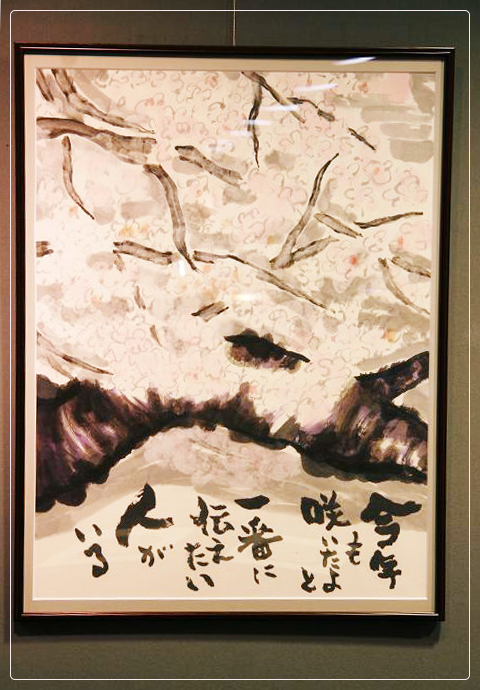 今年も
咲いたよと
一番に
伝えたい
人が
いる